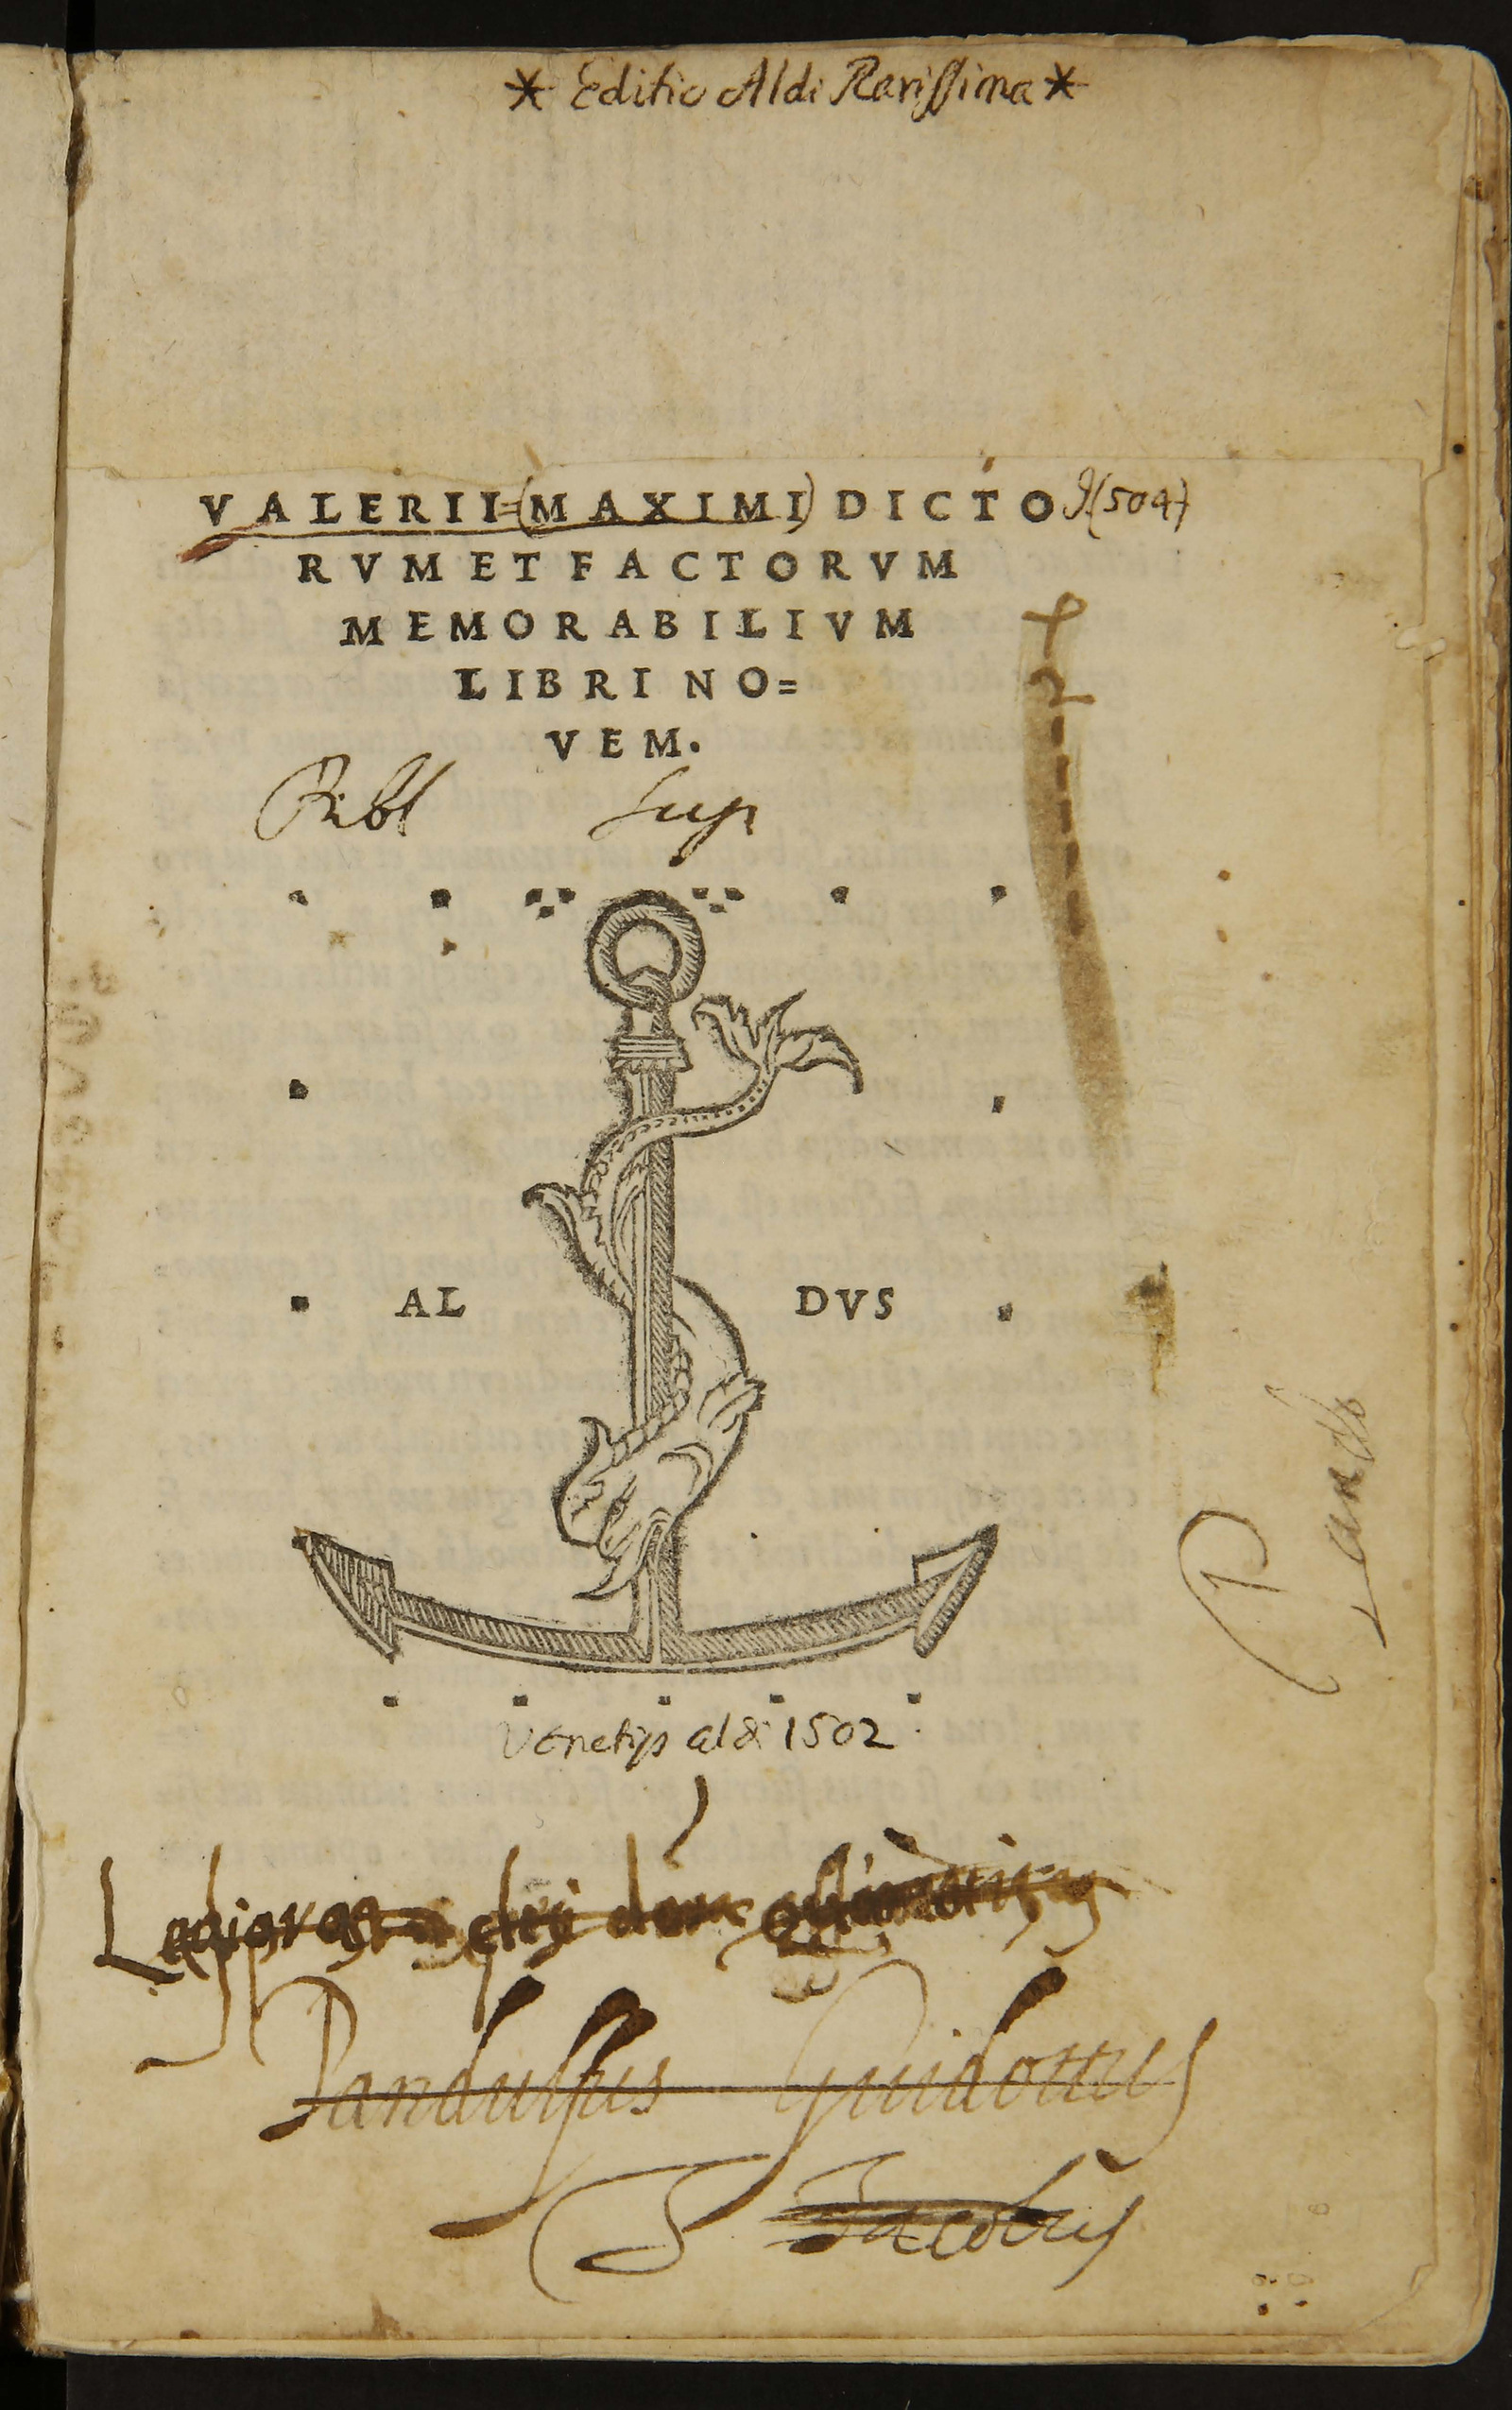 * Editio Aldi Rarissima *
VALERII (MAXIMI) DICTO
RVM ET FACTORVM
MEMORABILIVM
LIBRI NO=
VEM.
Bibl Sup
AL DVS
Venetijs aldi 1502
Pandulfus Guidottus
Jacobus